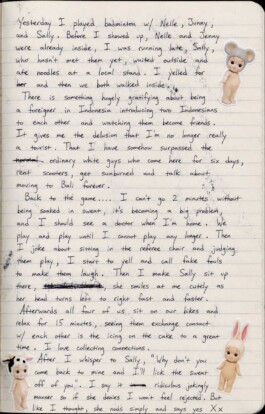 Yesterday I played badminton w/ Nelle, Jenny,
and Sally. Before I showed up, Nelle and Jenny
were already inside, I was running late, Sally,
who hasn't met them yet, waited outside and
ate noodles at a local stand. I yelled for
her and then we both walked inside.
There is something hugely gratifying about being
a foreigner in Indonesia introducing two Indonesians
to each other and watching them become friends.
It gives me the delusion that I'm no longer really
a tourist. That I have somehow surpassed the
ordinary white guys who come here for six days,
rent scooters, get sunburned and talk about
moving to Bali forever.
Back to the game..... I can't go 2 minutes without
being soaked in sweat, it's becoming a big problem,
and I should see a doctor when I'm home. We
play and play until I cannot play any longer. Then
I joke about sitting in the referee chair and judging
them play, I start to yell and call fake fouls
to make them laugh. Then I make Sally sit up
there, she smiles at me cutely as
her head turns left to right fast and faster.
Afterwards all four of us sit on our bikes and
relax for 15 minutes, seeing them exchange contact
w/ each other is the icing on the cake to a great
time. I love collecting connections.
After I whisper to Sally, "Why don't you
come back to mine and I'll lick the sweat
off of you". I say it ridiculous jokingly
manner so if she denies I won't feel rejected. But
like I thought, she nods simply and says yes Xx